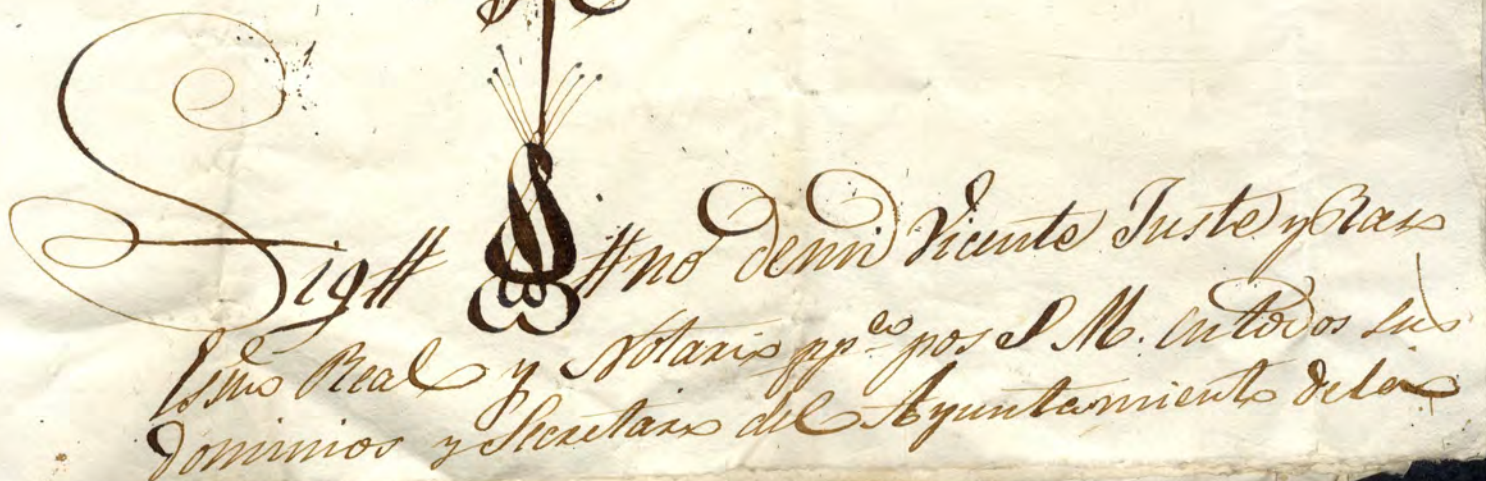 Sig# #no de mi Vicente Juste y
Essno Real y Notario ppco por S M. en todos sus
Dominios y Secretario del Ayuntamiento de la